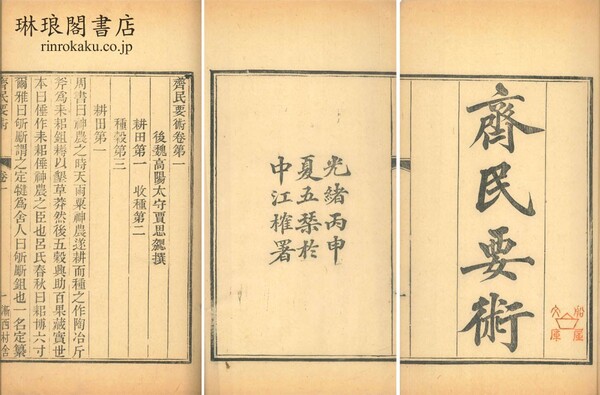 琳琅閣書店
rinrokaku.co.jp
齊民要術
光緒丙申
夏五琹於
中江榷署
齊民要術卷第一
後魏高陽太守賈思勰撰
耕田第一　收種第二
種穀第三
耕田第一
周書曰神農之時天雨粟神農遂耕而種之作陶冶斤
斧爲耒耜鉏耨以墾草莽然後五穀興助百果藏實世
本曰倕作耒耜倕神農之臣也呂氏春秋曰耜博六寸
爾雅曰斪斸謂之定犍爲舍人曰斪斸鉏也一名定纂
齊民要術　卷一　一　漸西村舍